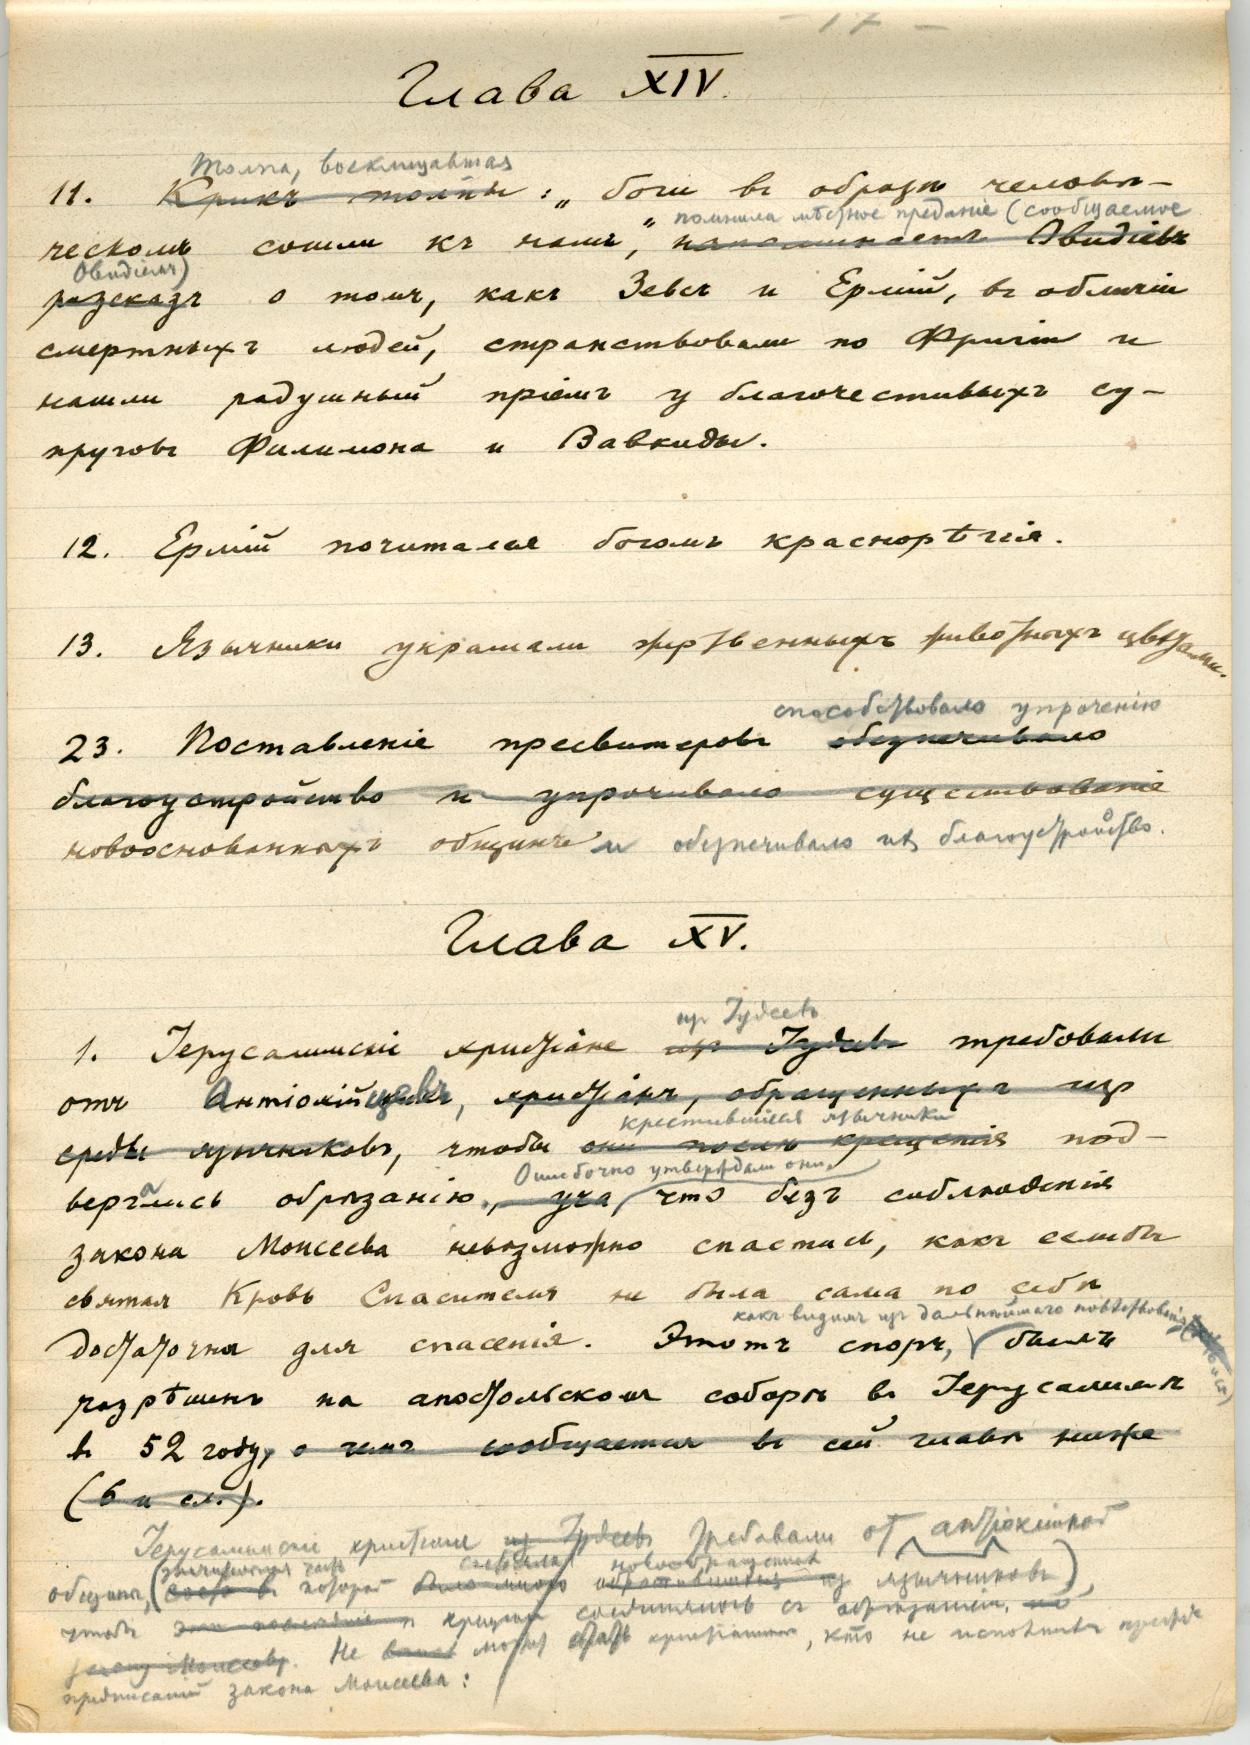 - 17 -
Глава XIV.
Толпа, восклицавшая
11. Крикъ толпы: „боги въ образѣ человѣ-
помнила мѣстное преданіе (сообщаемое
ческомъ сошли къ намъ“, напоминаетъ Овидіевъ
Овидіемъ)
разсказъ о томъ, какъ Зевсъ и Ермій, въ обличіи
смертныхъ людей, странствовали по Фригіи и
нашли радушный пріемъ у благочестивыхъ су-
пруговъ Филимона и Вавкиды.
12. Ермій почитался богомъ краснорѣчія.
13. Язычники украшали жертвенныхъ животныхъ цвѣтами.
способствовало упроченію
23. Поставленіе пресвитеровъ обезпечивало
благоустройство и упрочивало существованіе
новооснованныхъ общинъ и обезпечивало ихъ благоустройство.
Глава XV.
изъ Іудеевъ
1. Іерусалимскіе христіане изъ Іудеевъ требовали
отъ Антіохійцевъ, христіанъ, обращенныхъ изъ
крестившіеся язычники
среды язычниковъ, чтобы они послѣ крещенія под-
Ошибочно утверждали они,
вергались обрѣзанію, уча, что безъ соблюденія
закона Моисеева невозможно спастись, какъ если бы
святая Кровь Спасителя не была сама по себѣ
какъ видимъ изъ дальнѣйшаго повѣствованія
достаточна для спасенія. Этотъ споръ, былъ
разрѣшенъ на апостольскомъ соборѣ въ Іерусалимѣ
въ 52 году, о чемъ сообщается въ сей главѣ ниже
(6 и сл.).
Іерусалимскіе христіане изъ Іудеевъ требовали от антіохійской
новообращенныхъ
общины, ( которой было много обратившихся изъ язычниковъ),
чтобы они крещеніе соединялось съ обрѣзаніемъ, по
закону Моисееву. Не может стать христіаниномъ, кто не исполнитъ прежде
предписаній закона Моисеева: